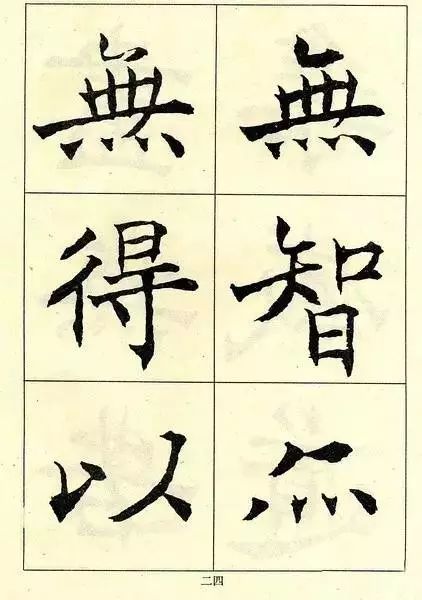 無智亦
無得以
二四